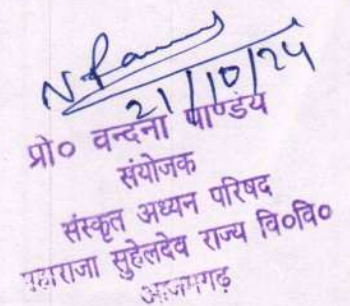 21/10/24
प्रो० वन्दना पाण्डेय
संयोजक
संस्कृत अध्यन परिषद
महाराजा सुहेलदेव राज्य वि०वि०
आजमगढ़